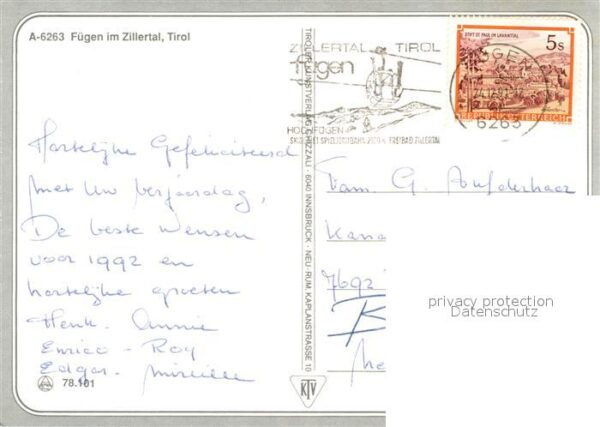 A-6263 Fügen im Zillertal, Tirol
ZILLERTAL TIROL
fügen
HOCHFÜGEN
FREIBAD ZILLERTAL
STIFT ST. PAUL IM LAVANTTAL
5s
REPUBLIK ÖSTERREICH
FÜGEN
6263
TIROLER KUNSTVERLAG CHIZZALI · 6040 INNSBRUCK - NEU-RUM, KAPLANSTRASSE 10
Hartelijke Gefeliciteerd
met Uw verjaardag,
De beste wensen
voor 1992 en
hartelijke groeten
Henk. Annie
Enrico - Roy
Edgar. Mireille
78.101
KTV
Fam. G. Aufderhaar
Kana
7692
privacy protection
Datenschutz